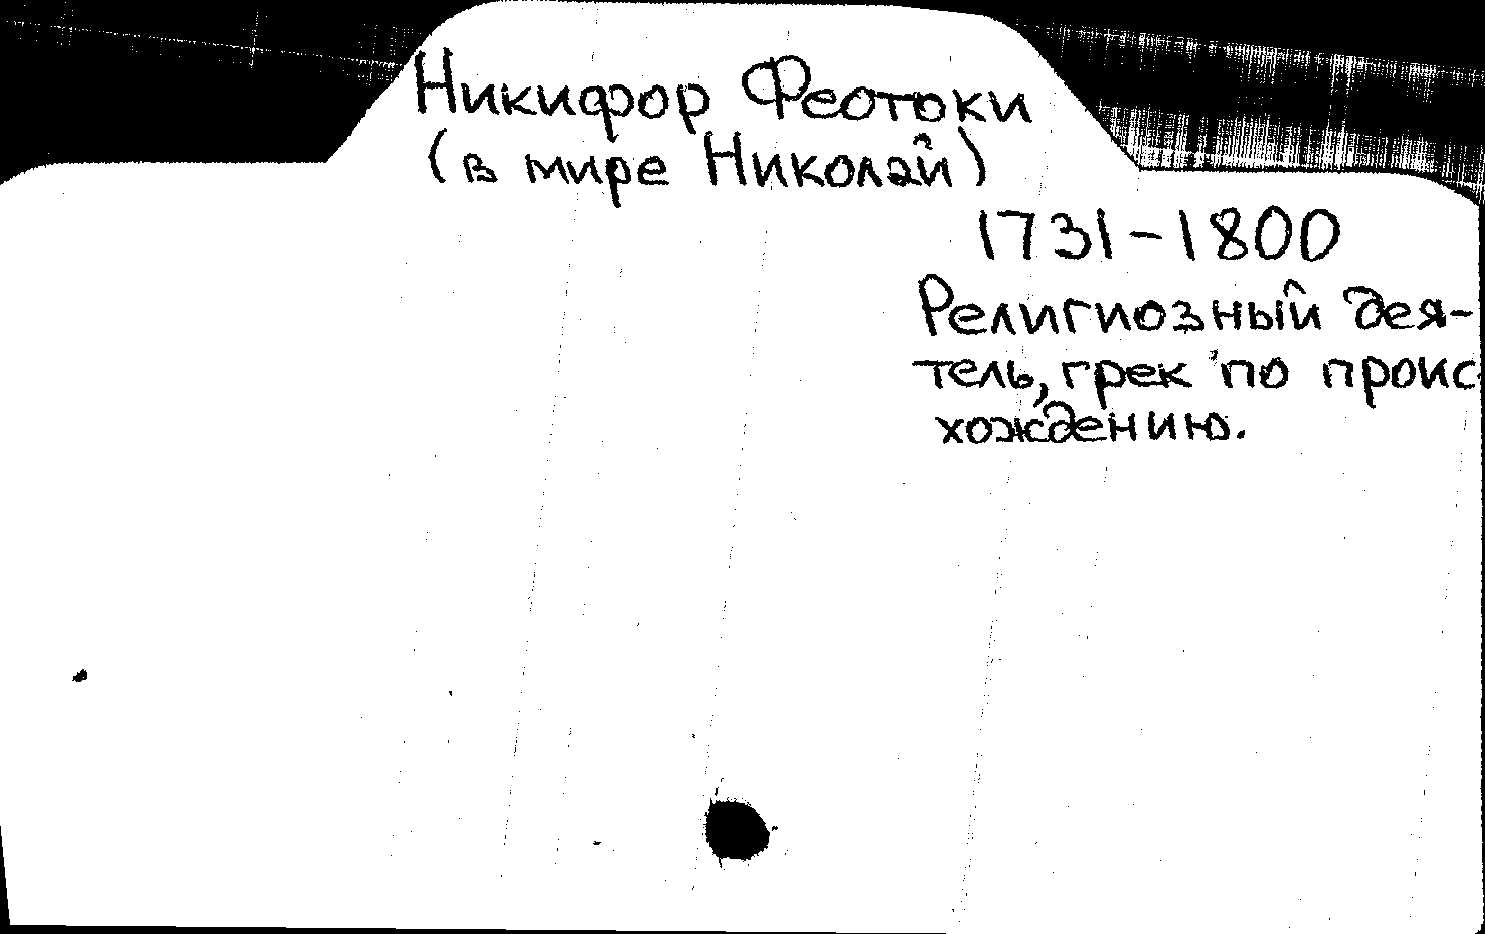 Никифор Феотоки
(в мире Николай)
1731-1800
Религиозный дея-
тель, грек по проис-
хождению.